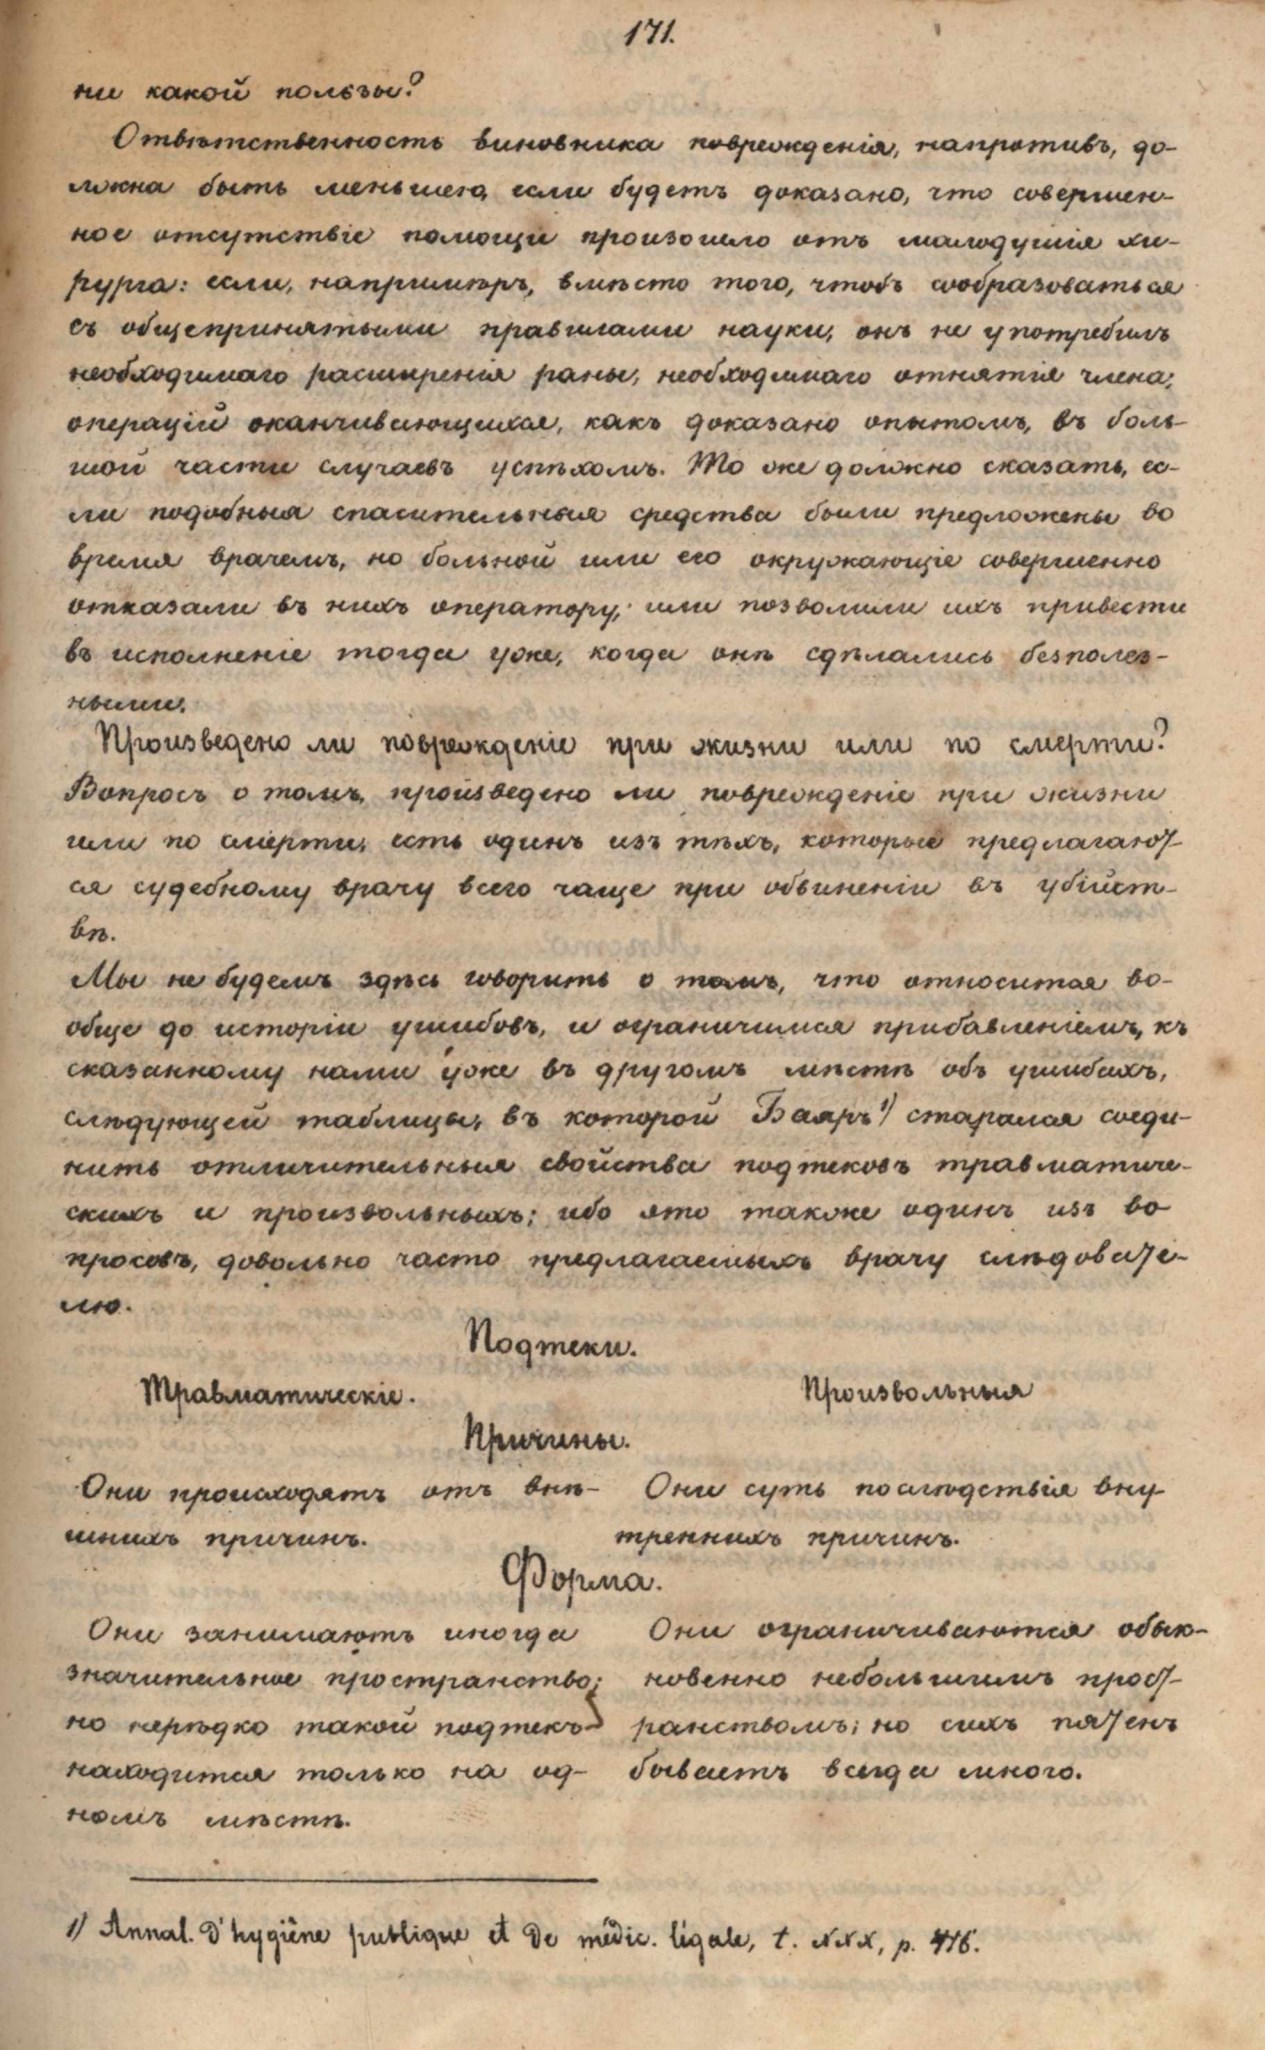 171.
ни какой пользы?
Отвѣтственность виновника поврежденія, напротивъ, до-
лжна быть меньшею, если будетъ доказано, что совершен-
ное отсутствіе помощи произошло отъ малодушія хи-
рурга: если, напримѣръ, вмѣсто того, чтобъ сообразоваться
съ общепринятыми правилами науки, онъ не употребилъ
необходимаго расширенія раны, необходимаго отнятія члена,
операцій оканчивающихся, какъ доказано опытомъ, въ боль-
шой части случаевъ успѣхомъ. То же должно сказать, ес-
ли подобныя спасительныя средства были предложены во
время врачемъ, но больной или его окружающіе совершенно
отказали въ нихъ оператору; или позволили ихъ привести
въ исполненіе тогда уже, когда онѣ сдѣлались безполез-
ными.
Произведено ли поврежденіе при жизни или по смерти?
Вопросъ о томъ, произведено ли поврежденіе при жизни
или по смерти, есть одинъ изъ тѣхъ, которые предлагают-
ся судебному врачу всего чаще при обвиненіи въ убійст-
вѣ.
Мы не будемъ здѣсь говорить о томъ, что относится во-
обще до исторіи ушибовъ, и ограничимся прибавленіемъ, къ
сказанному нами уже въ другомъ мѣстѣ объ ушибахъ,
слѣдующей таблицы, въ которой Баяръ 1) старался соеди-
нить отличительныя свойства подтековъ травматиче-
скихъ и произвольныхъ; ибо это также одинъ изъ во
просовъ, довольно часто предлагаемыхъ врачу слѣдовате-
лю.
Подтеки.
Травматическіе. Произвольныя
Причины.
Они происходятъ отъ внѣ- Они суть послѣдствія вну
шнихъ причинъ. треннихъ причинъ.
Форма.
Они занимаютъ иногда Они ограничиваются обык-
значительное пространство; новенно небольшимъ прост-
но нерѣдко такой подтекъ ранствомъ; но сихъ пятенъ
находится только на од- бываетъ всегда много.
номъ мѣстѣ.
1) Annal. d'hygiène publique et de médic. légale, t. XXX, p.